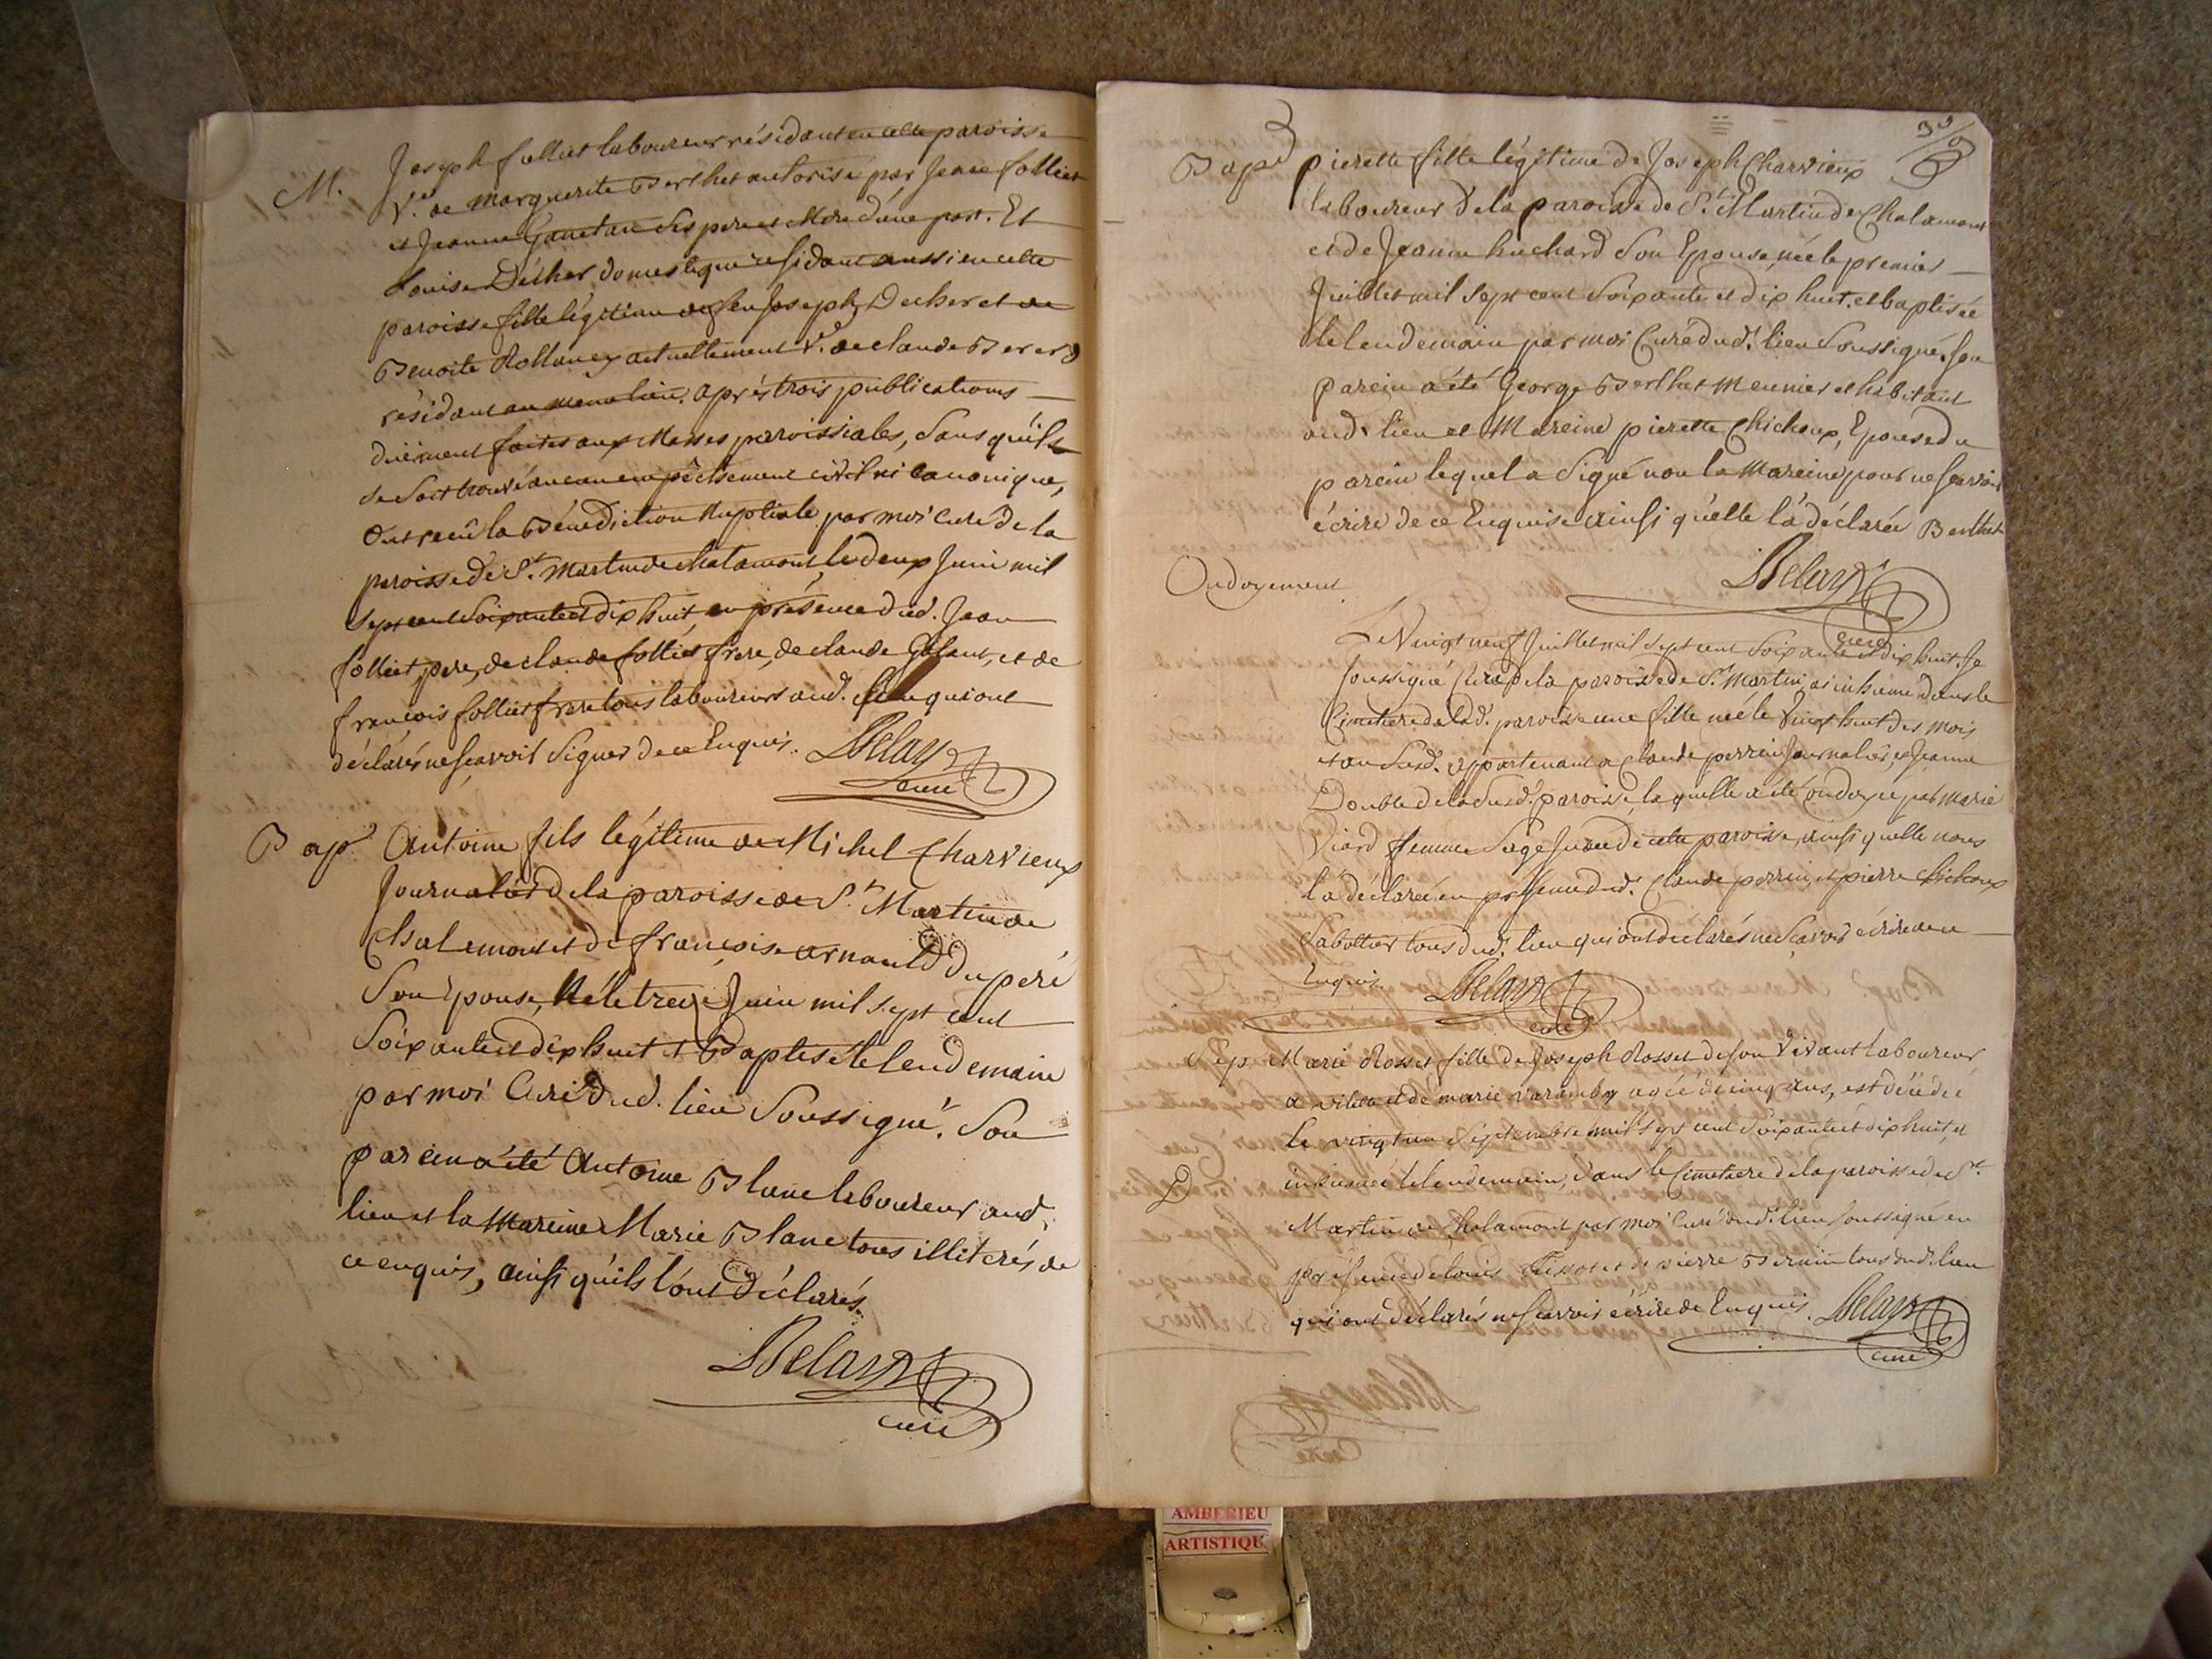 M.
Joseph folliet laboureur résidant en cette paroisse
V.f de Marguerite Berthet autorisé par Jean folliet
et Jeanne ses pere et Mere d'une part. Et
Louise Décher domestique residant aussi en cette
paroisse fille légitime de feu Joseph Decher et de
Benoite Rollan actuellement V. de claude
résidant au meme lieu. après trois publications
düement faites aux Messes parroissiales, sans qu'il
se soit trouvé aucun empêchement civil ni canonique,
Ont recû la Bénédiction Nuptiale par moi Curé de la
paroisse de St. Martin de chalamont, le deux Juin mil
sept cent soixante et dix huit, en présence dud. Jean
folliet pere, de claude folliet frere, de claude et de
francois folliet frere tous laboureurs aud. lieu qui ont
déclarés ne scavoir signer de ce Enquis. Delay
curé
Bap. Antoine fils légitime de Michel Charvieux
Journalier de la paroisse de St. Martin de
Chalamont et de francoise arnauld duperé
Son Epouse, Né le treize Juin mil sept cent
Soixante et dix huit et Baptisé le lendemain
par moi Curé dud. lieu Soussigné. Son
parein a été Antoine Blanc laboureur aud.
lieu et la Mareine Marie Blanc tous illiterés de
ce enquis, ainsi qu'ils l'ont déclarés.
Delay
curé
Bap. pierette fille légitime de Joseph Charvieux
laboureur de la paroisse de St. Martin de Chalamont
et de Jeanne huchard Son Epouse, née le premier
Juillet mil sept cent Soixante et dix huit. et baptisée
le lendemain par moi Curé dud. lieu Soussigné. Son
parein a été George Berthet Meunier et habitant
aud. lieu et Mareine pierette Chichoux, Epouse du
parein lequel a signé non la Mareine pour ne scavoir
écrire de ce Enquise ainsi qu'elle l'a déclarée Berthet
Delay
curé
Ondoyement
Le Vingt neuf Juillet mil sept cent Soixante et dix huit. Je
Soussigné Curé de la paroisse de St. Martin ai inhumé dans le
Cimetiere de lad. paroisse une fille née le Vingt huit des mois
et an Susd. appartenant a Claude perrin Journalier, et Jeanne
Double de la Susd. paroisse, laquelle a été ondoyée par Marie
Viard femme Sage Jurée de cette paroisse, ainsi quelle nous
l'a déclarée en présence dud. Claude perrin, et pierre Chichoux
Sabottier tous dud. lieu qui ont déclarés ne Scavoir écrire de ce
Enquis. Delay
curé
Sep. Marie Rosset fille de Joseph Rosset de son Vivant laboureur
a et de marie varambo agée de cinq ans, est décédée
le vingt un Septembre mil sept cent Soixante et dix huit, et
inhumée le lendemain, dans le Cimetiere de la paroisse de St.
Martin de Chalamont par moi Curé dud. lieu Soussigné en
présence de Louis et de pierre tous dud. lieu
qui ont déclarés ne Scavoir écrire de Enquis. Delay
curé
AMBERIEU
ARTISTIQU